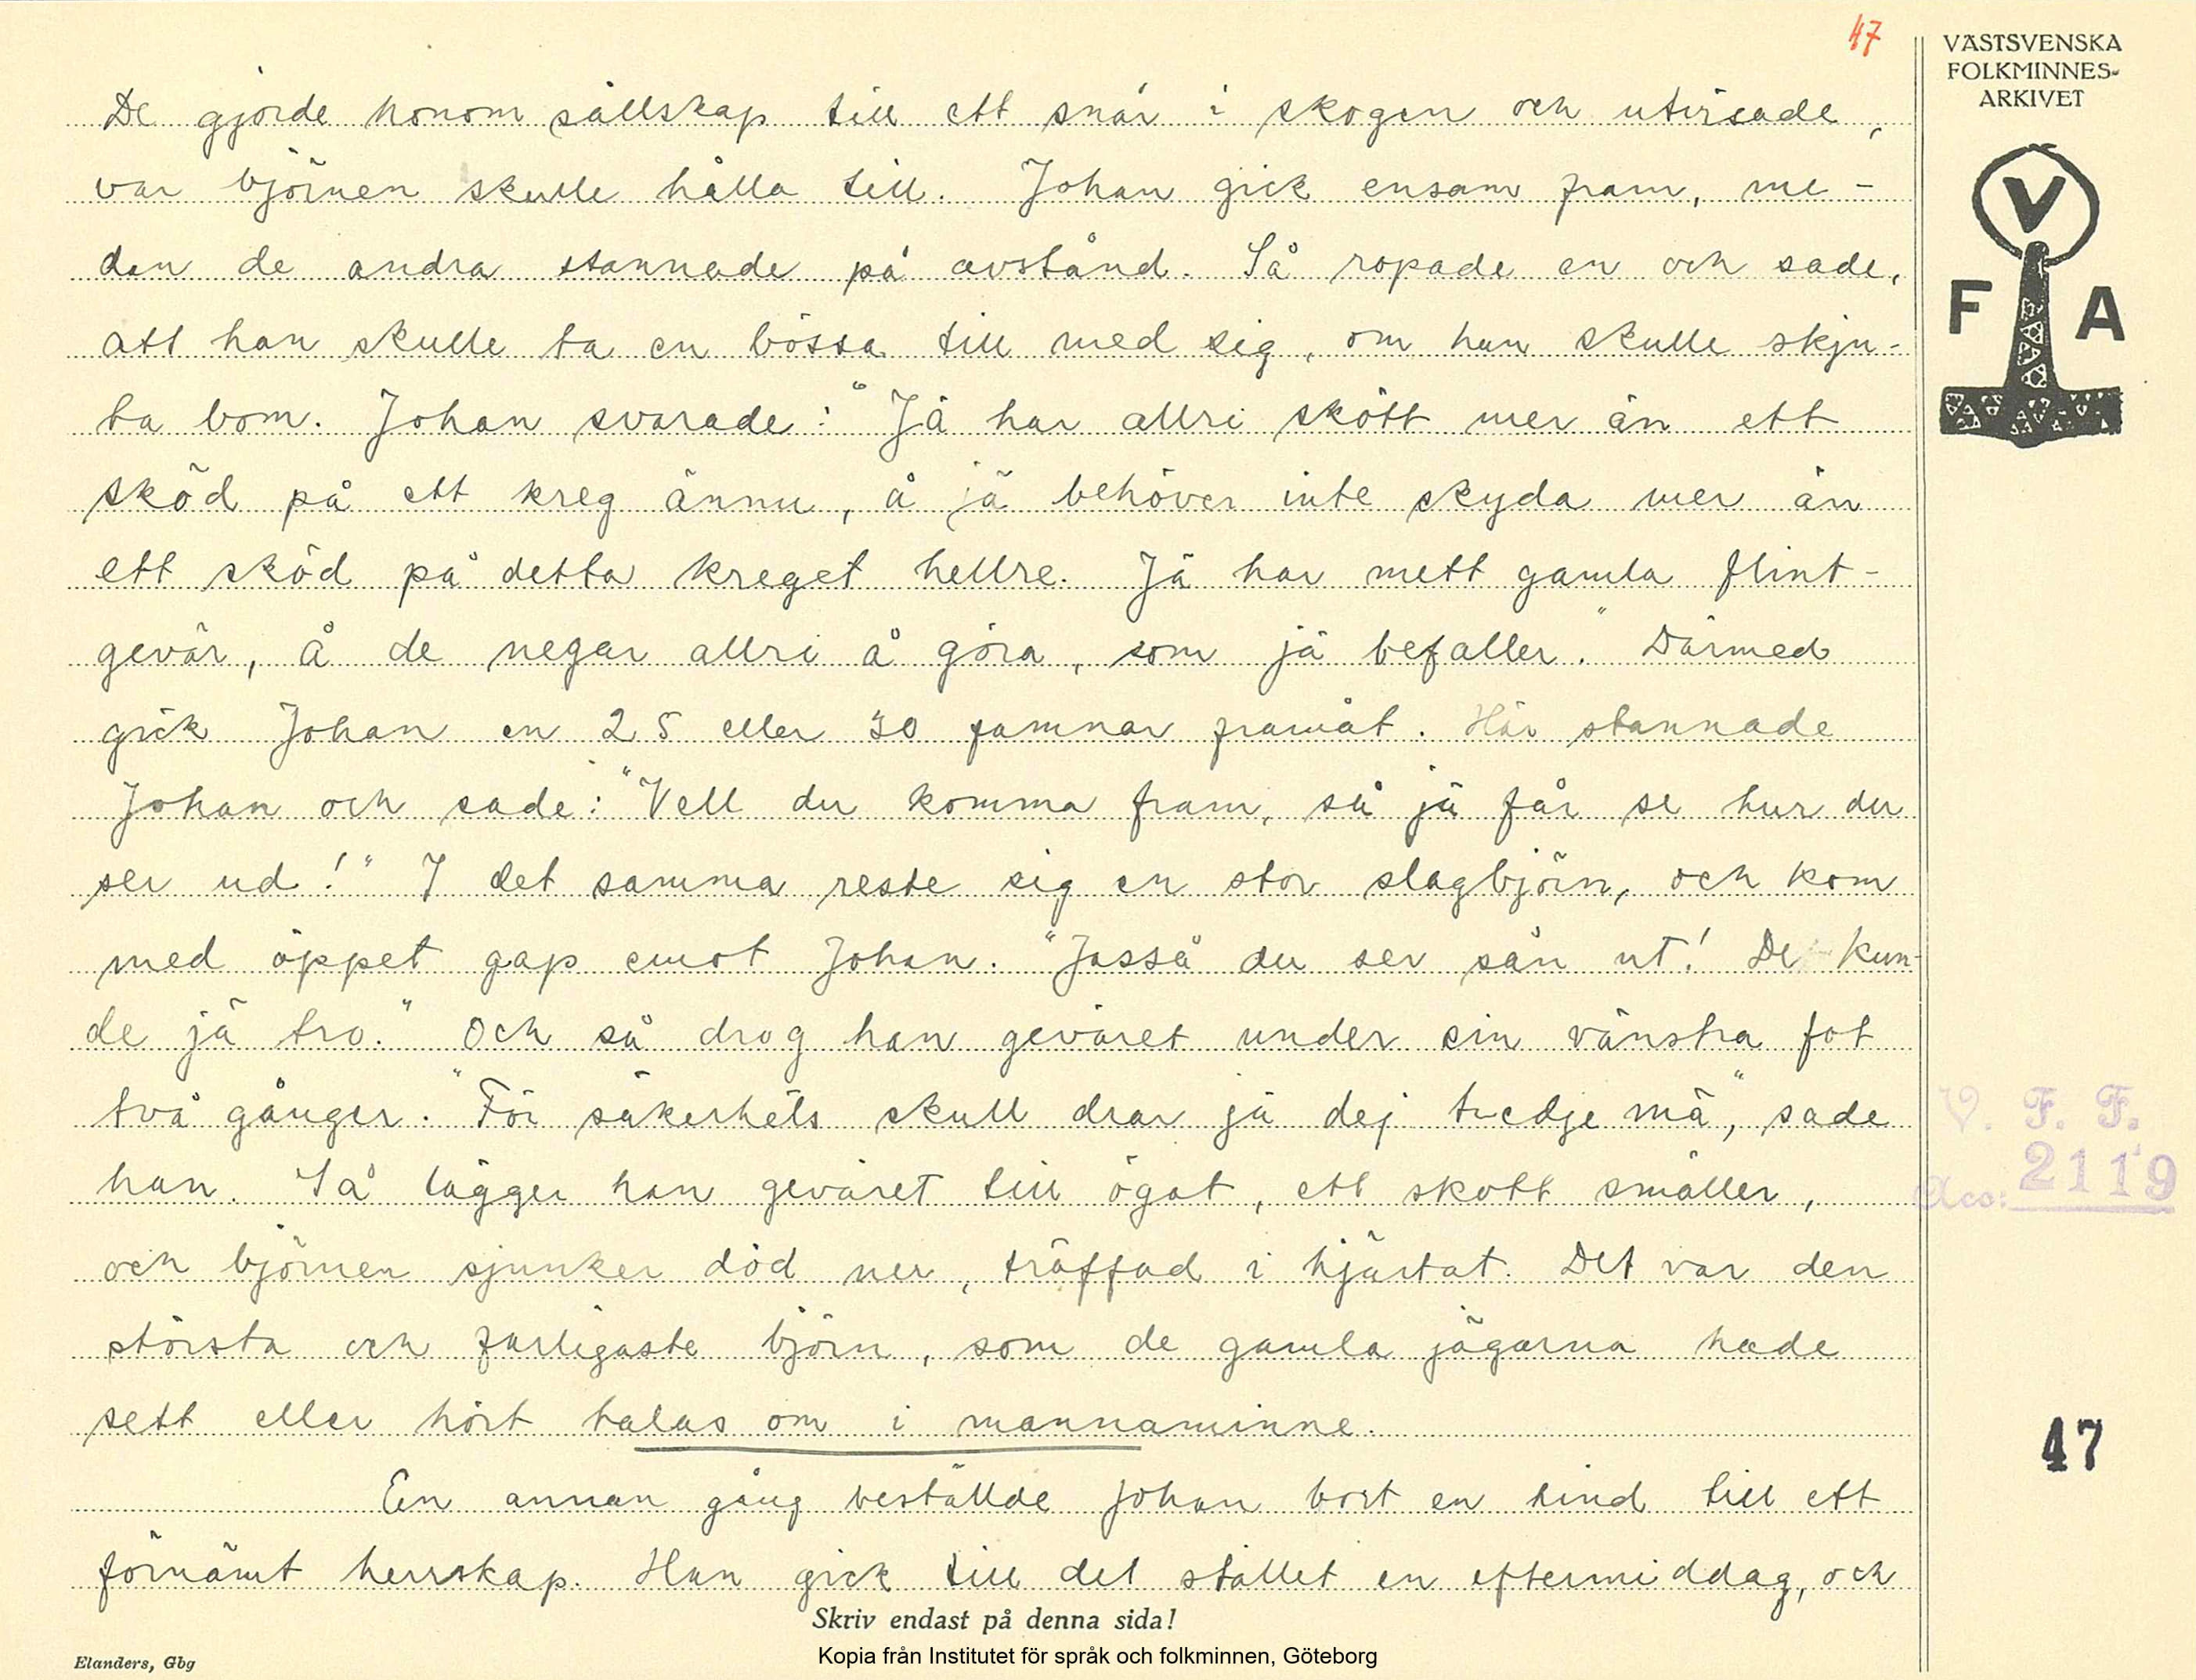 47
VÄSTSVENSKA
FOLKMINNES-
ARKIVET
V
F A
De gjorde honom sällskap till ett snår i skogen och utvisade,
var björnen skulle hålla till. Johan gick ensam fram, me-
dan de andra stannade på avstånd. Så ropade en och sade,
att han skulle ta en bössa till med sig, om han skulle skju-
ta bom. Johan svarade: "Jä har allri skött mer än ett
sköd på ett kreg ännu, å jä behöver inte skyda mer än
ett sköd på detta kreget hellre. Jä har mett gamla flint-
gevär, å de negar allri å göra, som jä befaller." Därmed
gick Johan en 25 eller 30 famnar framåt. Här stannade
Johan och sade: "Vell du komma fram, så jä får se hur du
ser ud!" I det samma reste sig en stor slagbjörn, och kom
med öppet gap emot Johan. "Jasså du ser sån ut! De kun-
de jä tro." Och så drog han geväret under sin vänstra fot
två gånger. "För säkerhets skull drar jä dej tredje mä", sade
han. Så lägger han geväret till ögat, ett skott smäller,
och björnen sjunker död ner, träffad i hjärtat. Det var den
största och farligaste björn, som de gamla jägarna hade
sett eller hört talas om i mannaminne.
En annan gång beställde Johan bort en hind till ett
förnämt herrskap. Han gick till det stället en eftermiddag, och
V. F. F.
Acc: 2119
47
Skriv endast på denna sida!
Kopia från Institutet för språk och folkminnen, Göteborg
Elanders, Gbg